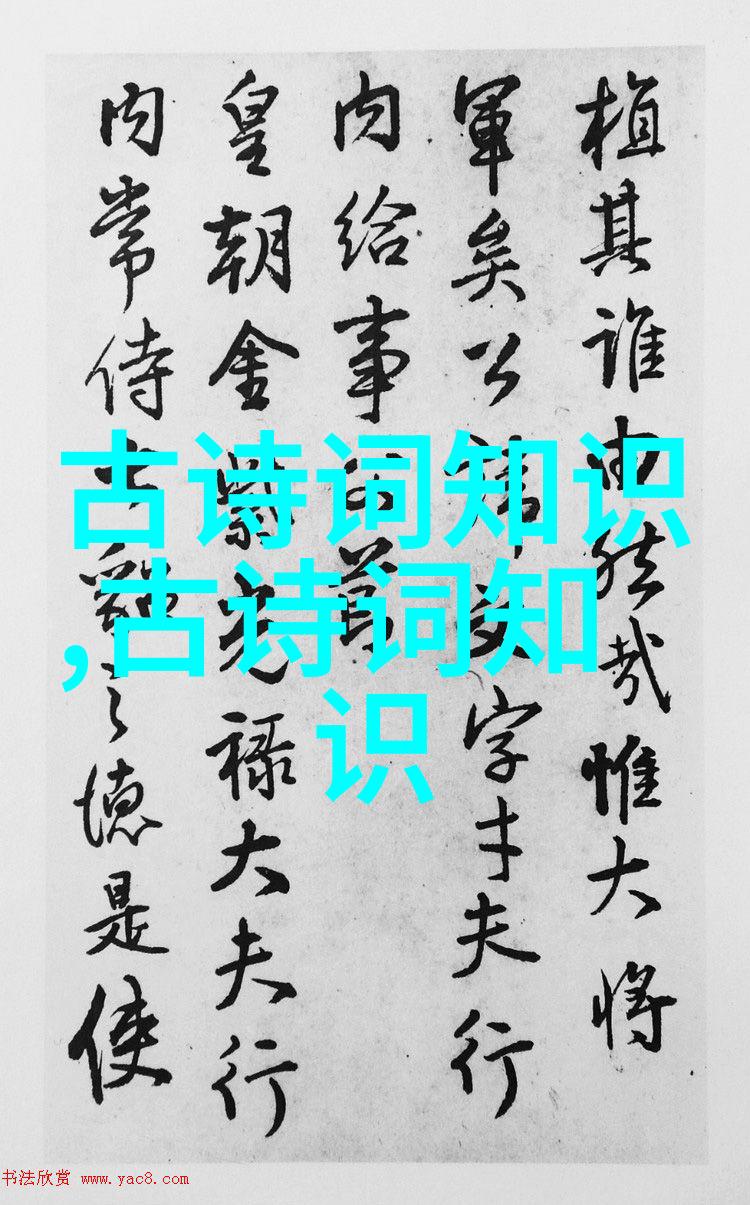 植其谁由然哉惟大将
軍矣公讳文字才夫行
内给事
皇朝金紫光禄大夫行
内常侍
德是使
古诗词知识
,古诗词知
识
书法欣赏 www.yac8.com